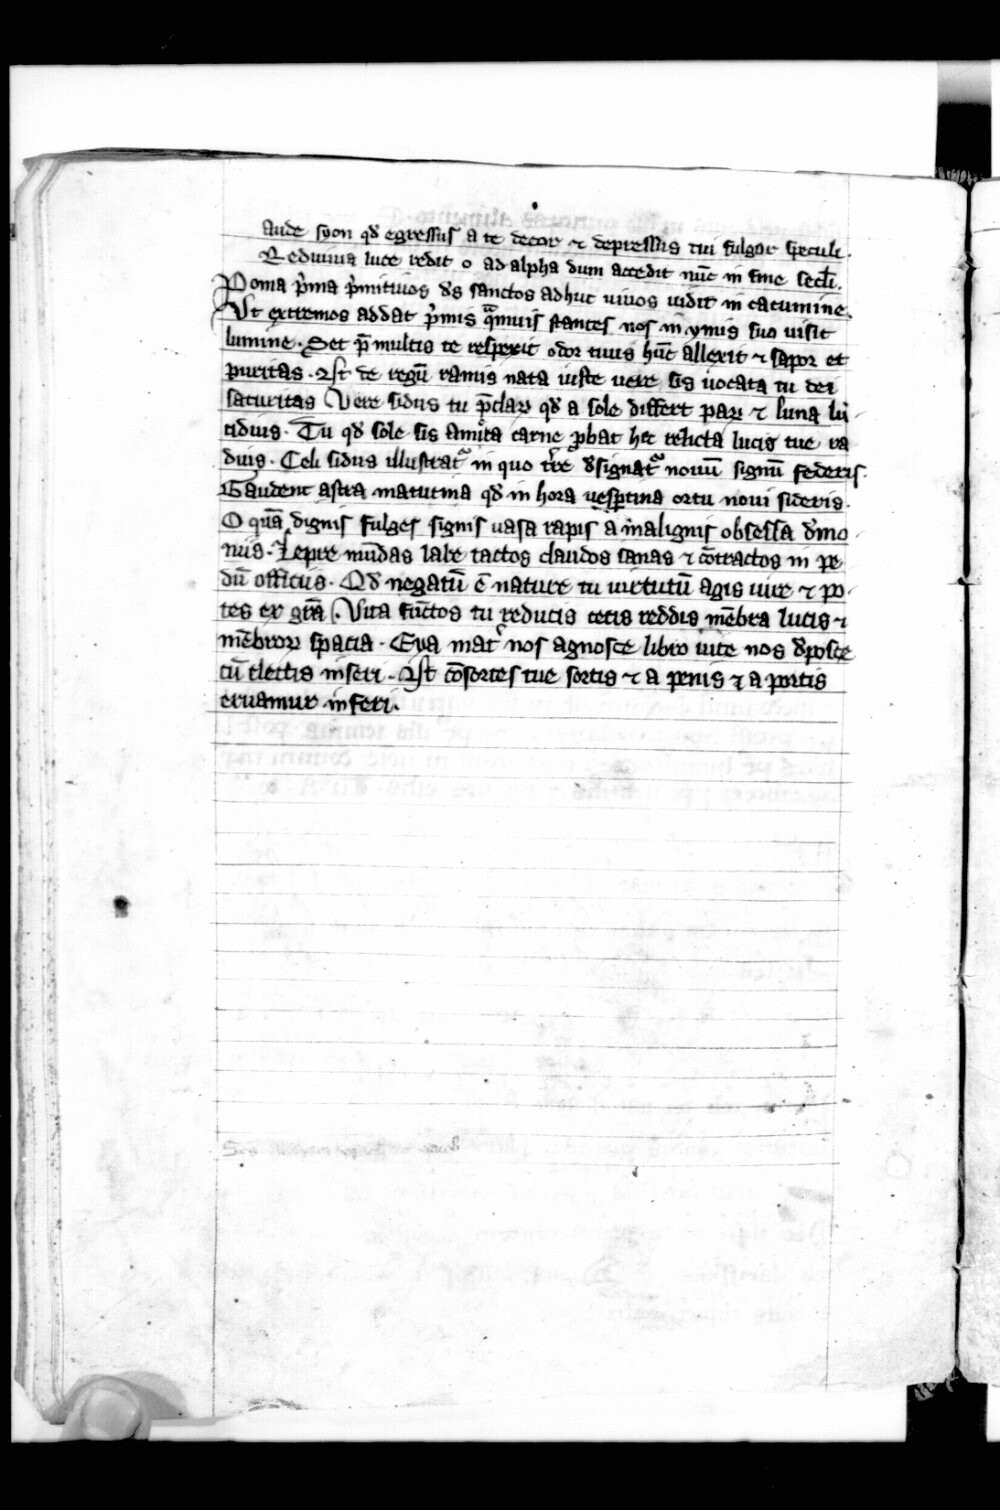 Aude syon qd̛ egressus a te decor ⁊ depressus tui fulgor speculi.
Rediuiua luce redit o ad alpha dum accedit nūc in fine secl̄i.
Poma p̄ma p̄mitiuos ds̄ sanctos adhuc uiuos uidit in cacumine.
Vt extremos addat p̄mis q̄muis stantes nos in ymis suo uisit
lumine. Set p̄ multis te respexit odor tuus hūc allexit ⁊ sapor et
puritas. Ast de regū ramis nata iuste uere sis uocata tu dei
saturitas Vere sidus tu p̄claꝝ qd̛ a sole differt paꝝ ⁊ luna lu
cidius. Tu qd̛ sole sis amicta carne ꝓbat hec relicta lucis tue ra
dius. Celi sidus illustrat᷑ in quo tr̄re dsignat᷑ nouū signū federis.
Gaudent astra matutina qd̛ in hora uesꝑtina ortu noui sideris.
O quā dignis fulges signis uasa rapis a malignis obsessa dmo
niis. Lepre mūdas labe tactos claudos sanas ⁊ cōtractos in pe
dū officiis. Qd̛ negatū ē nature tu uirtutū agis iure ⁊ po
tes ex gr̄a. Vita fūctos tu reducis cecis reddis mēbra lucis ⁊
mēbroꝝ spacia. Eya mat᷑ nos agnosce libro uite nos dposce
cū electis inseri. Ast cōsortes tue sortis ⁊ a penis ⁊ a portis
eruamur inferi.